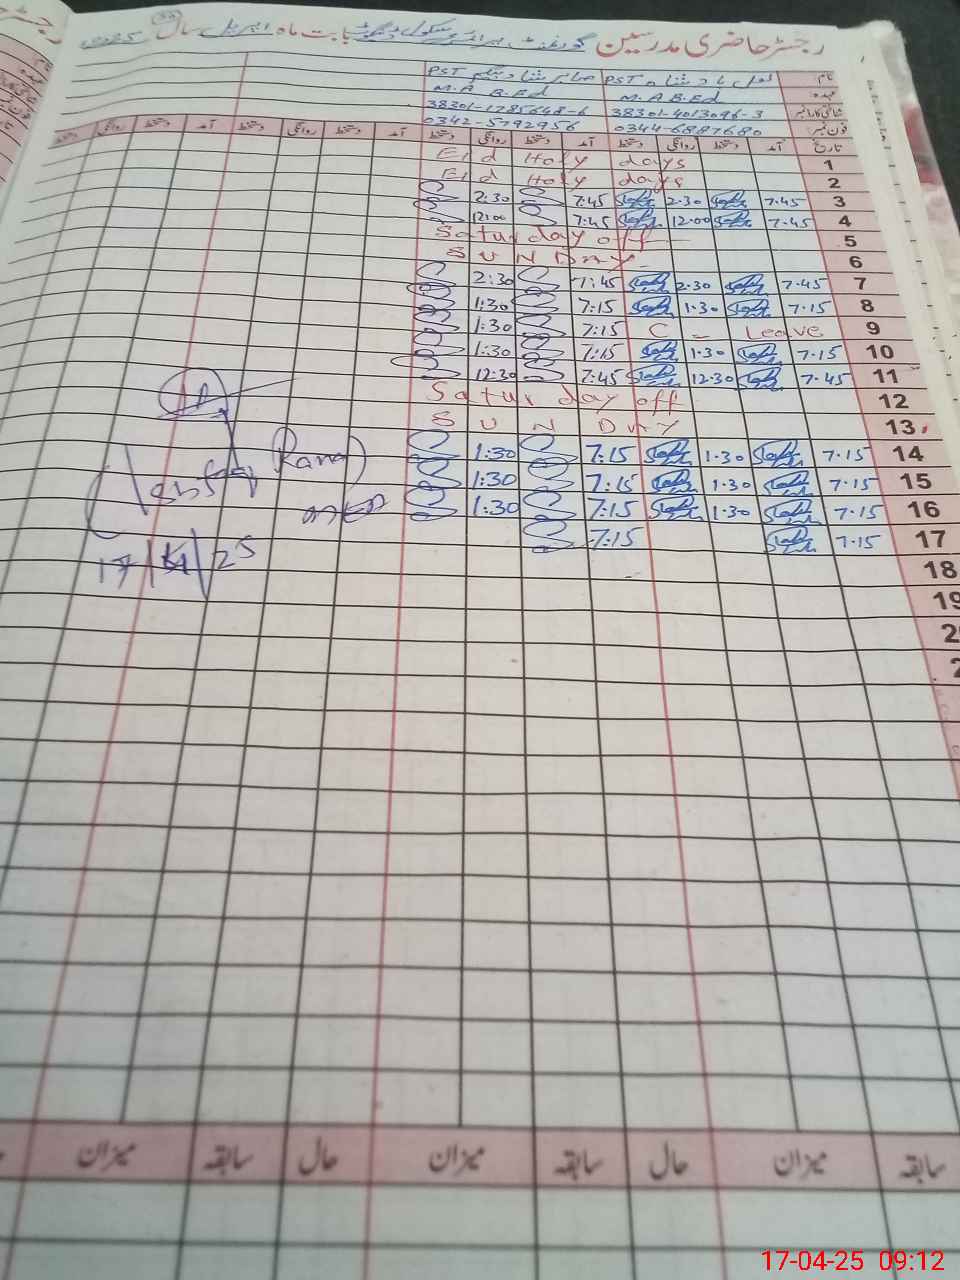 رجسٹر حاضری مدرسین گورنمنٹ پرائمری سکول بابت ماہ اپریل سال 2025
نام PST صابر شاد بیگم PST
عہدہ M.A B.Ed M.A B.Ed
شناختی کارڈ نمبر 38301-4013096-3 38301-1785648-6
فون نمبر 0344-6887680 0342-5792756
تاریخ آمد دستخط روانگی دستخط آمد دستخط روانگی دستخط آمد دستخط روانگی دستخط آمد دستخط روانگی دستخط
1 Eid Holy days
2 Eid Holy days
3 7.45 2.30 7:45 2:30
4 7.45 12.00 7:45 12:00
5 Saturday off
6 SUNDAY
7 7.45 2.30 7:45 2:30
8 7.15 1.30 7:15 1:30
9 C - Leave 7:15 1:30
10 7.15 1.30 7:15 1:30
11 7.45 12.30 7:45 12:30
12 Saturday off
13 SUNDAY
14 7.15 1.30 7:15 1:30
15 7.15 1.30 7:15 1:30
16 7.15 1.30 7:15 1:30
17 7.15 7:15
18
19
17/4/25
سابقہ میزان حال سابقہ میزان حال سابقہ میزان
17-04-25 09:12